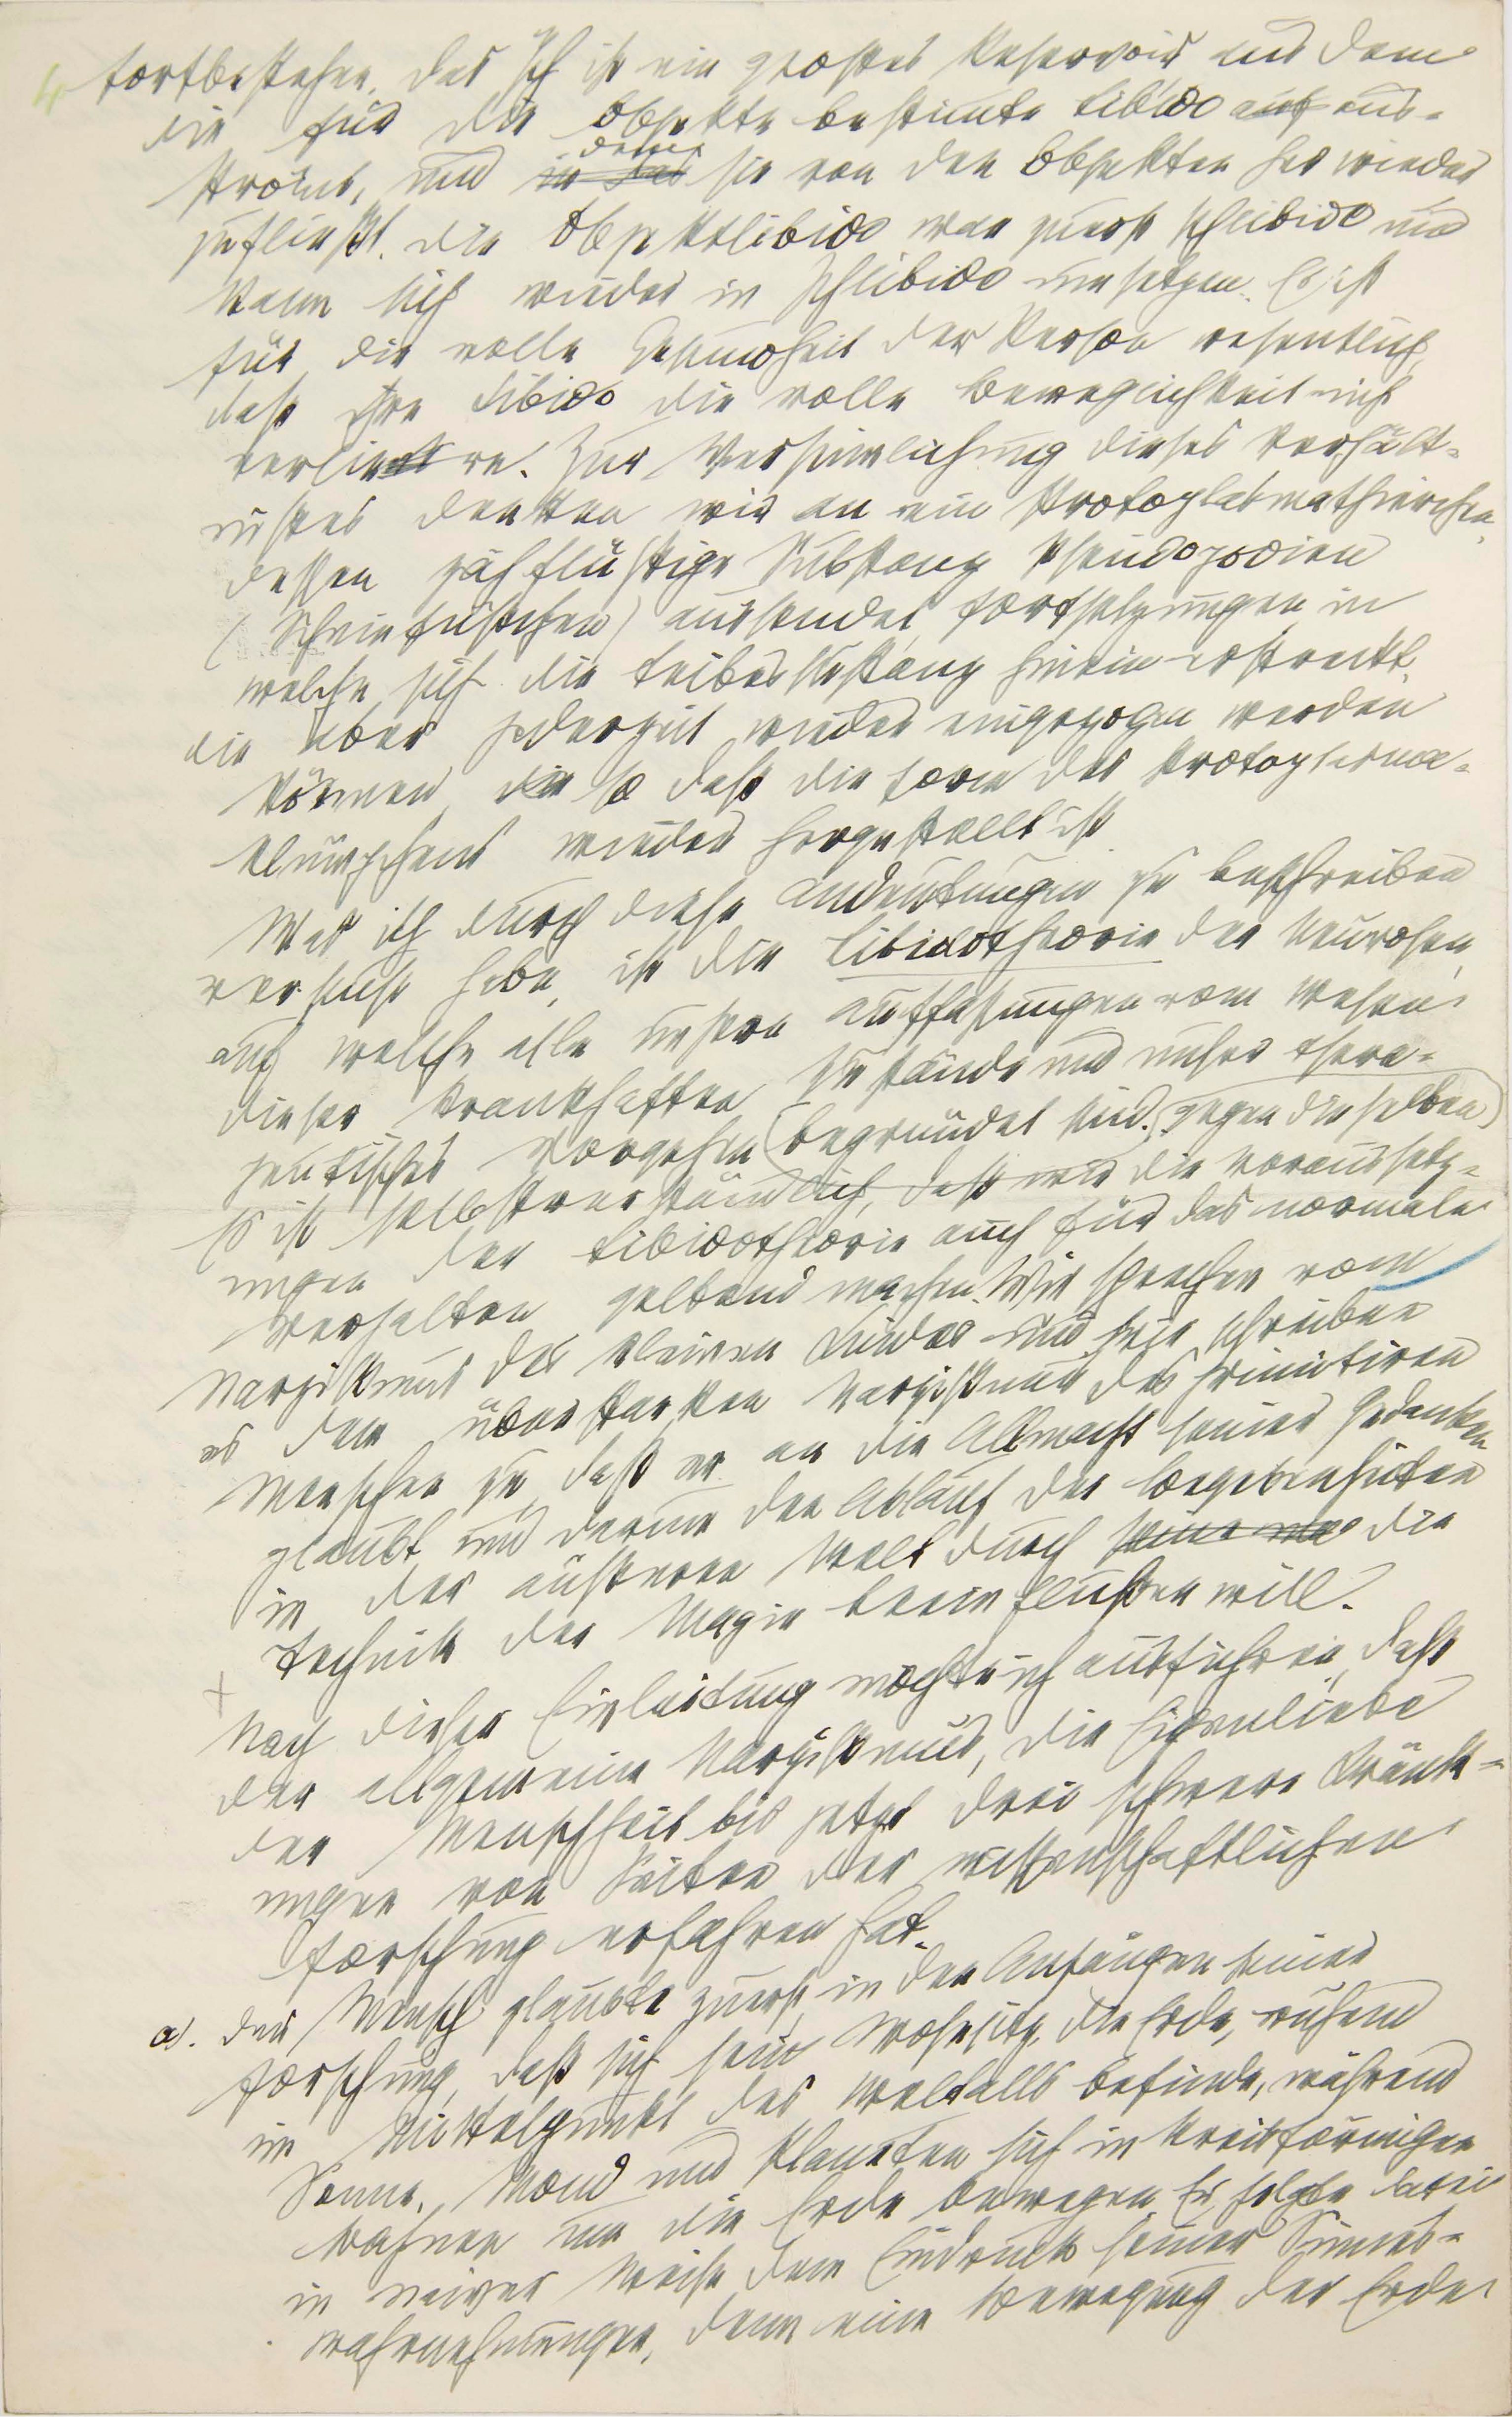 4 fortbestehen. Das Ich ist ein großes Reservoir aus dem
die für die Objekte bestimmte Libido auf aus-
strömt, und in das dem sie von den Objekten her wieder
zufließt. Die Objektlibido war zuerst Ichlibido und
kann sich wieder in Ichlibido umsetzen. Es ist
für die volle Gesundheit der Person wesentlich,
daß ihre Libido die volle Beweglichkeit nicht
verliere. Zur Versinnlichung dieses Verhält-
nisses denken wir an ein Protoplasmathierchen,
dessen zähflüssige Substanz Pseudopodien
(Scheinfüßchen) aussendet, Fortsetzungen in
welche sich die Leibessubstanz hinein erstreckt,
die aber jederzeit wieder eingezogen werden
können, die so daß die Form des Protoplasma-
klümpchens wieder hergestellt ist.
Was ich durch diese Andeutungen zu beschreiben
versucht habe, ist die Libidotheorie der Neurosen,
auf welche alle unsere Auffassungen vom Wesen
dieser krankhaften Zustände und unser thera-
peutisches Vorgehen (begründet sind.) gegen dieselben
Es ist selbstverständlich, daß wir die Voraussetz-
ungen der Libidotheorie auch für das normale
Verhalten geltend machen. Wir sprechen vom
Narzißmus des kleinen Kindes und wir schreiben
es dem überstarken Narzißmus des primitiven
Menschen zu, daß er an die Allmacht seiner Gedanken
glaubt und darum den Ablauf der Begebenheiten
in der äußeren Welt durch seine die
Technik der Magie beeinflußen will.
+
Nach dieser Einleitung möchte ich ausführen, daß
der allgemeine Narzißmus, die Eigenliebe
der Menschheit bis jetzt drei schwere Kränk-
ungen von Seiten der wissenschaftlichen
Forschung erfahren hat.
a). Der Mensch glaubte zuerst, in den Anfängen seiner
Forschung, daß sich sein Wohnsitz, die Erde, ruhend
im Mittelpunkt des Weltalls befinde, während
Sonne, Mond und Planeten sich in kreisförmigen
Bahnen um die Erde bewegen. Er folgte dabei
in naiver Weise dem Eindruck seiner Sinnes-
wahrnehmungen, denn eine Bewegung der Erde